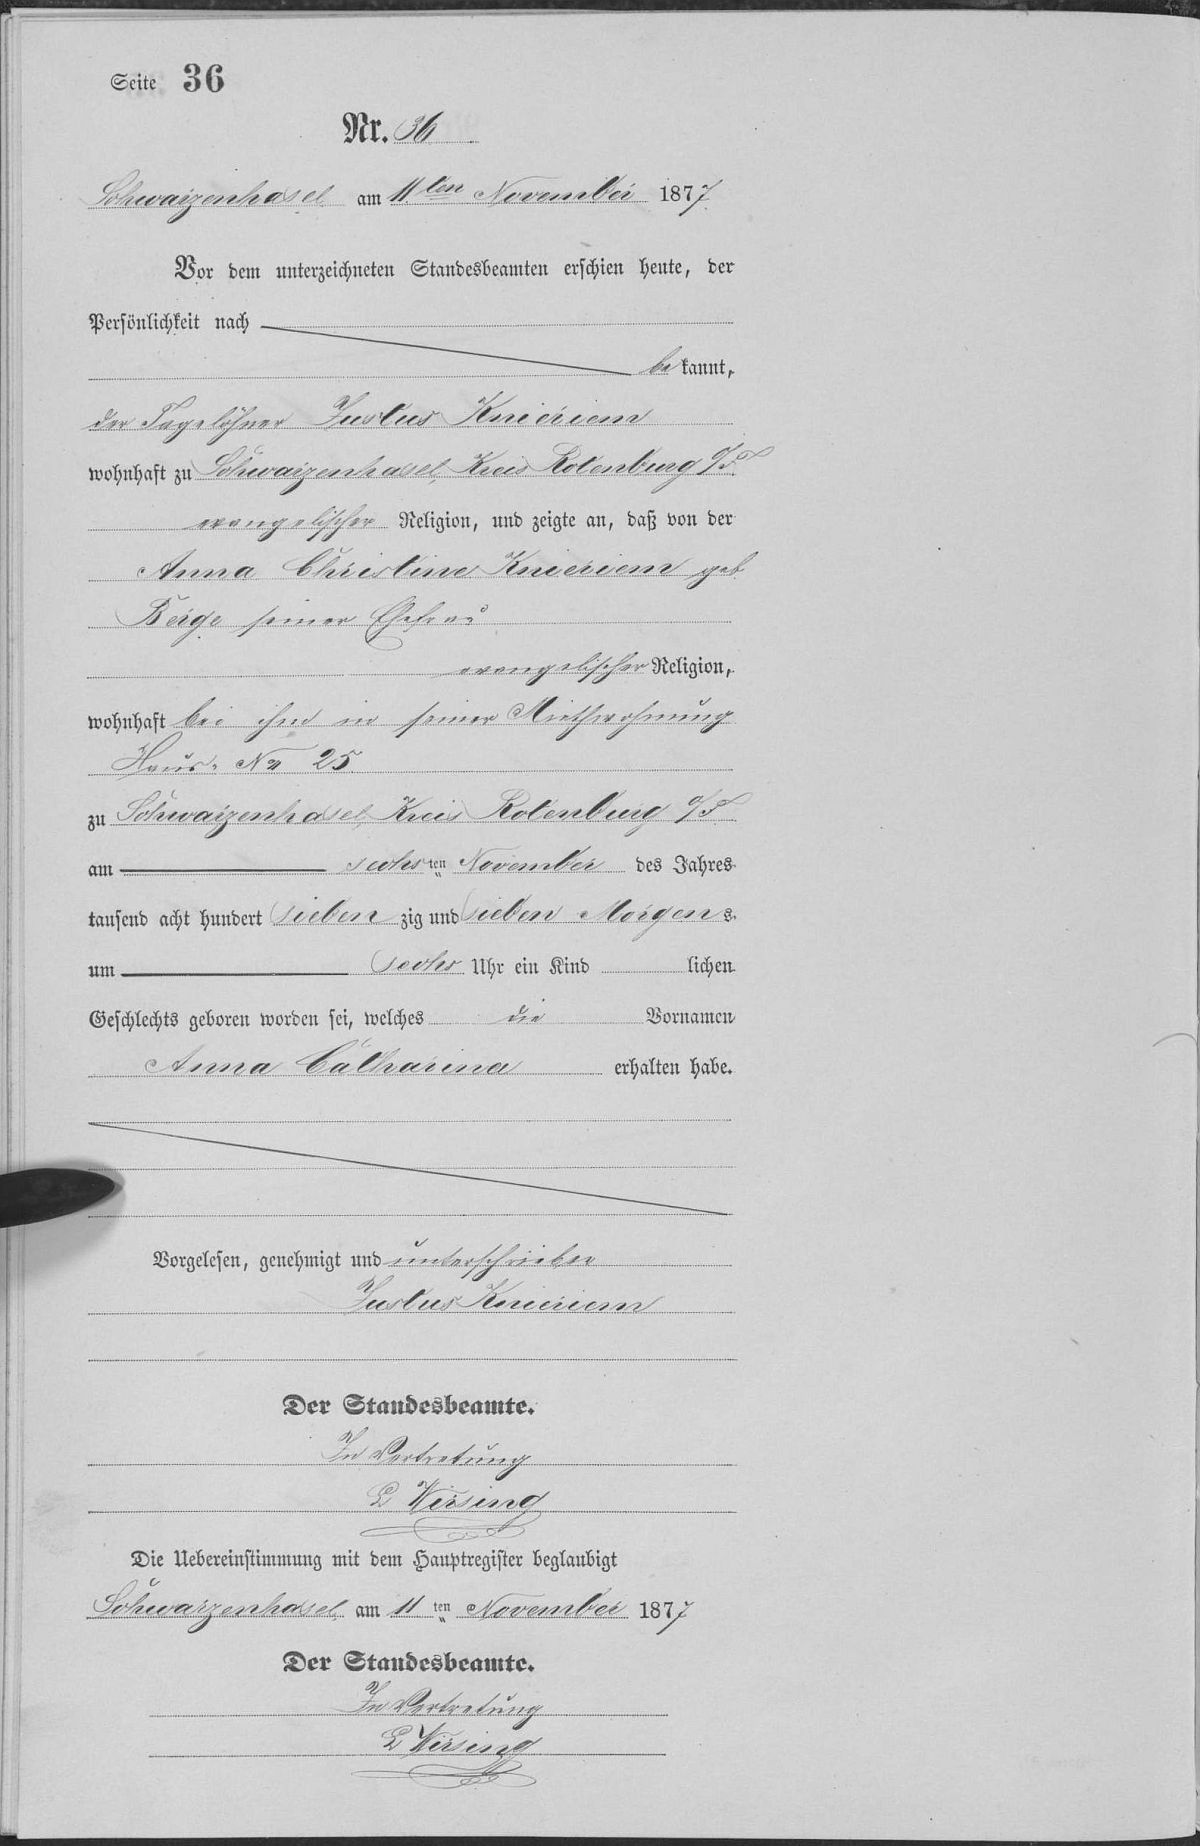 Seite 36
Nr. 36
Schwarzenhasel am 11ten November 1877
Vor dem unterzeichneten Standesbeamten erschien heute, der
Persönlichkeit nach
bekannt,
der Tagelöhner Justus Knieriem
wohnhaft zu Schwarzenhasel, Kreis Rotenburg a/F.
evangelischer Religion, und zeigte an, daß von der
Anna Christine Knieriem geb
Berge seiner Ehefrau
evangelischer Religion,
wohnhaft bei ihm in seiner Miethwohnung
Haus-No 25.
zu Schwarzenhasel, Kreis Rotenburg a/F.
am sechsten November des Jahres
tausend acht hundert sieben zig und sieben Morgens
um sechs Uhr ein Kind lichen
Geschlechts geboren worden sei, welches die Vornamen
Anna Catharina erhalten habe.
Vorgelesen, genehmigt und unterschrieben
Justus Knieriem
Der Standesbeamte.
In Vertretung
L Wirsing
Die Uebereinstimmung mit dem Hauptregister beglaubigt
Schwarzenhasel, am 11ten November 1877
Der Standesbeamte.
In Vertretung
L Wirsing